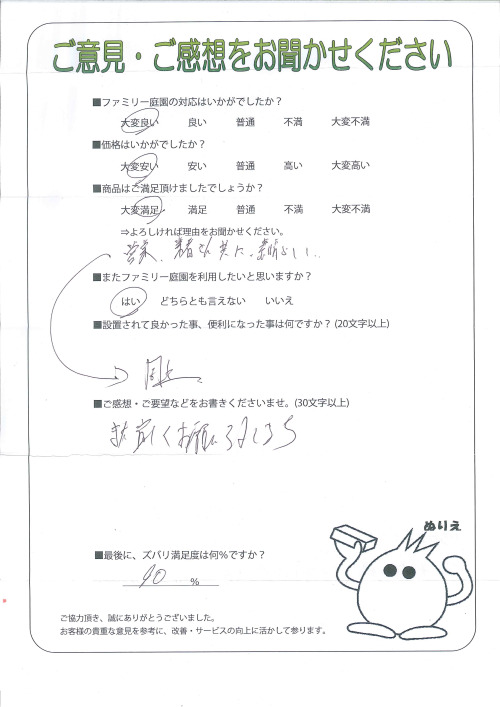 ご意見・ご感想をお聞かせください
■ファミリー庭園の対応はいかがでしたか？
大変良い 良い 普通 不満 大変不満
■価格はいかがでしたか？
大変安い 安い 普通 高い 大変高い
■商品はご満足頂けましたでしょうか？
大変満足 満足 普通 不満 大変不満
⇒よろしければ理由をお聞かせください。
共に
■またファミリー庭園を利用したいと思いますか？
はい どちらとも言えない いいえ
■設置されて良かった事、便利になった事は何ですか？(20文字以上)
同上
■ご感想・ご要望などをお書きくださいませ。(30文字以上)
また宜しくお願いします
ぬりえ
■最後に、ズバリ満足度は何％ですか？
90 %
ご協力頂き、誠にありがとうございました。
お客様の貴重な意見を参考に、改善・サービスの向上に活かして参ります。